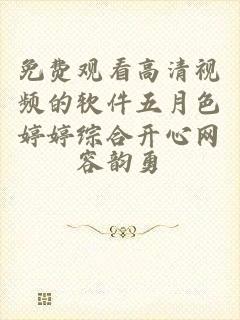 免费观看高清视
频的软件五月色
婷婷综合开心网
容韵勇